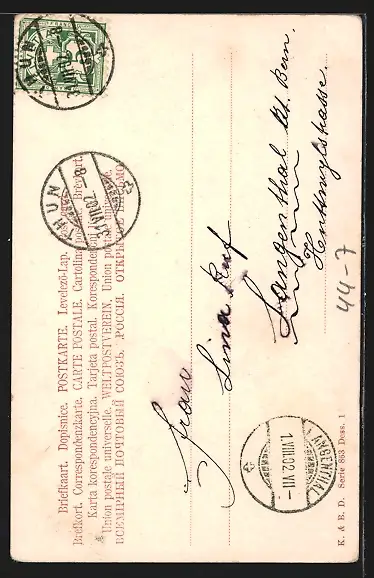 Briefkaart. Dopisnice. POSTKARTE. Levelező-Lap.
Brefkort. Correspondenzkarte. CARTE POSTALE. Cartolina postale. Brevkort.
Karta korespondencyjna. Tarjeta postal. Korespondenční
Union postale universelle. WELTPOSTVEREIN. Union postale universelle.
ВСЕМІРНЫЙ ПОЧТОВЫЙ СОЮЗЪ. РОССІЯ. ОТКРЫТОЕ ПИСЬМО.
THUN
31.VII.02.-8
THUN
31.VII.02.-8
Frau
Lina Ruf
Langenthal Kt. Bern.
44-7
LANGENTHAL
1.VIII.02.VII-
K. & B. D. Serie 863 Dess. 1